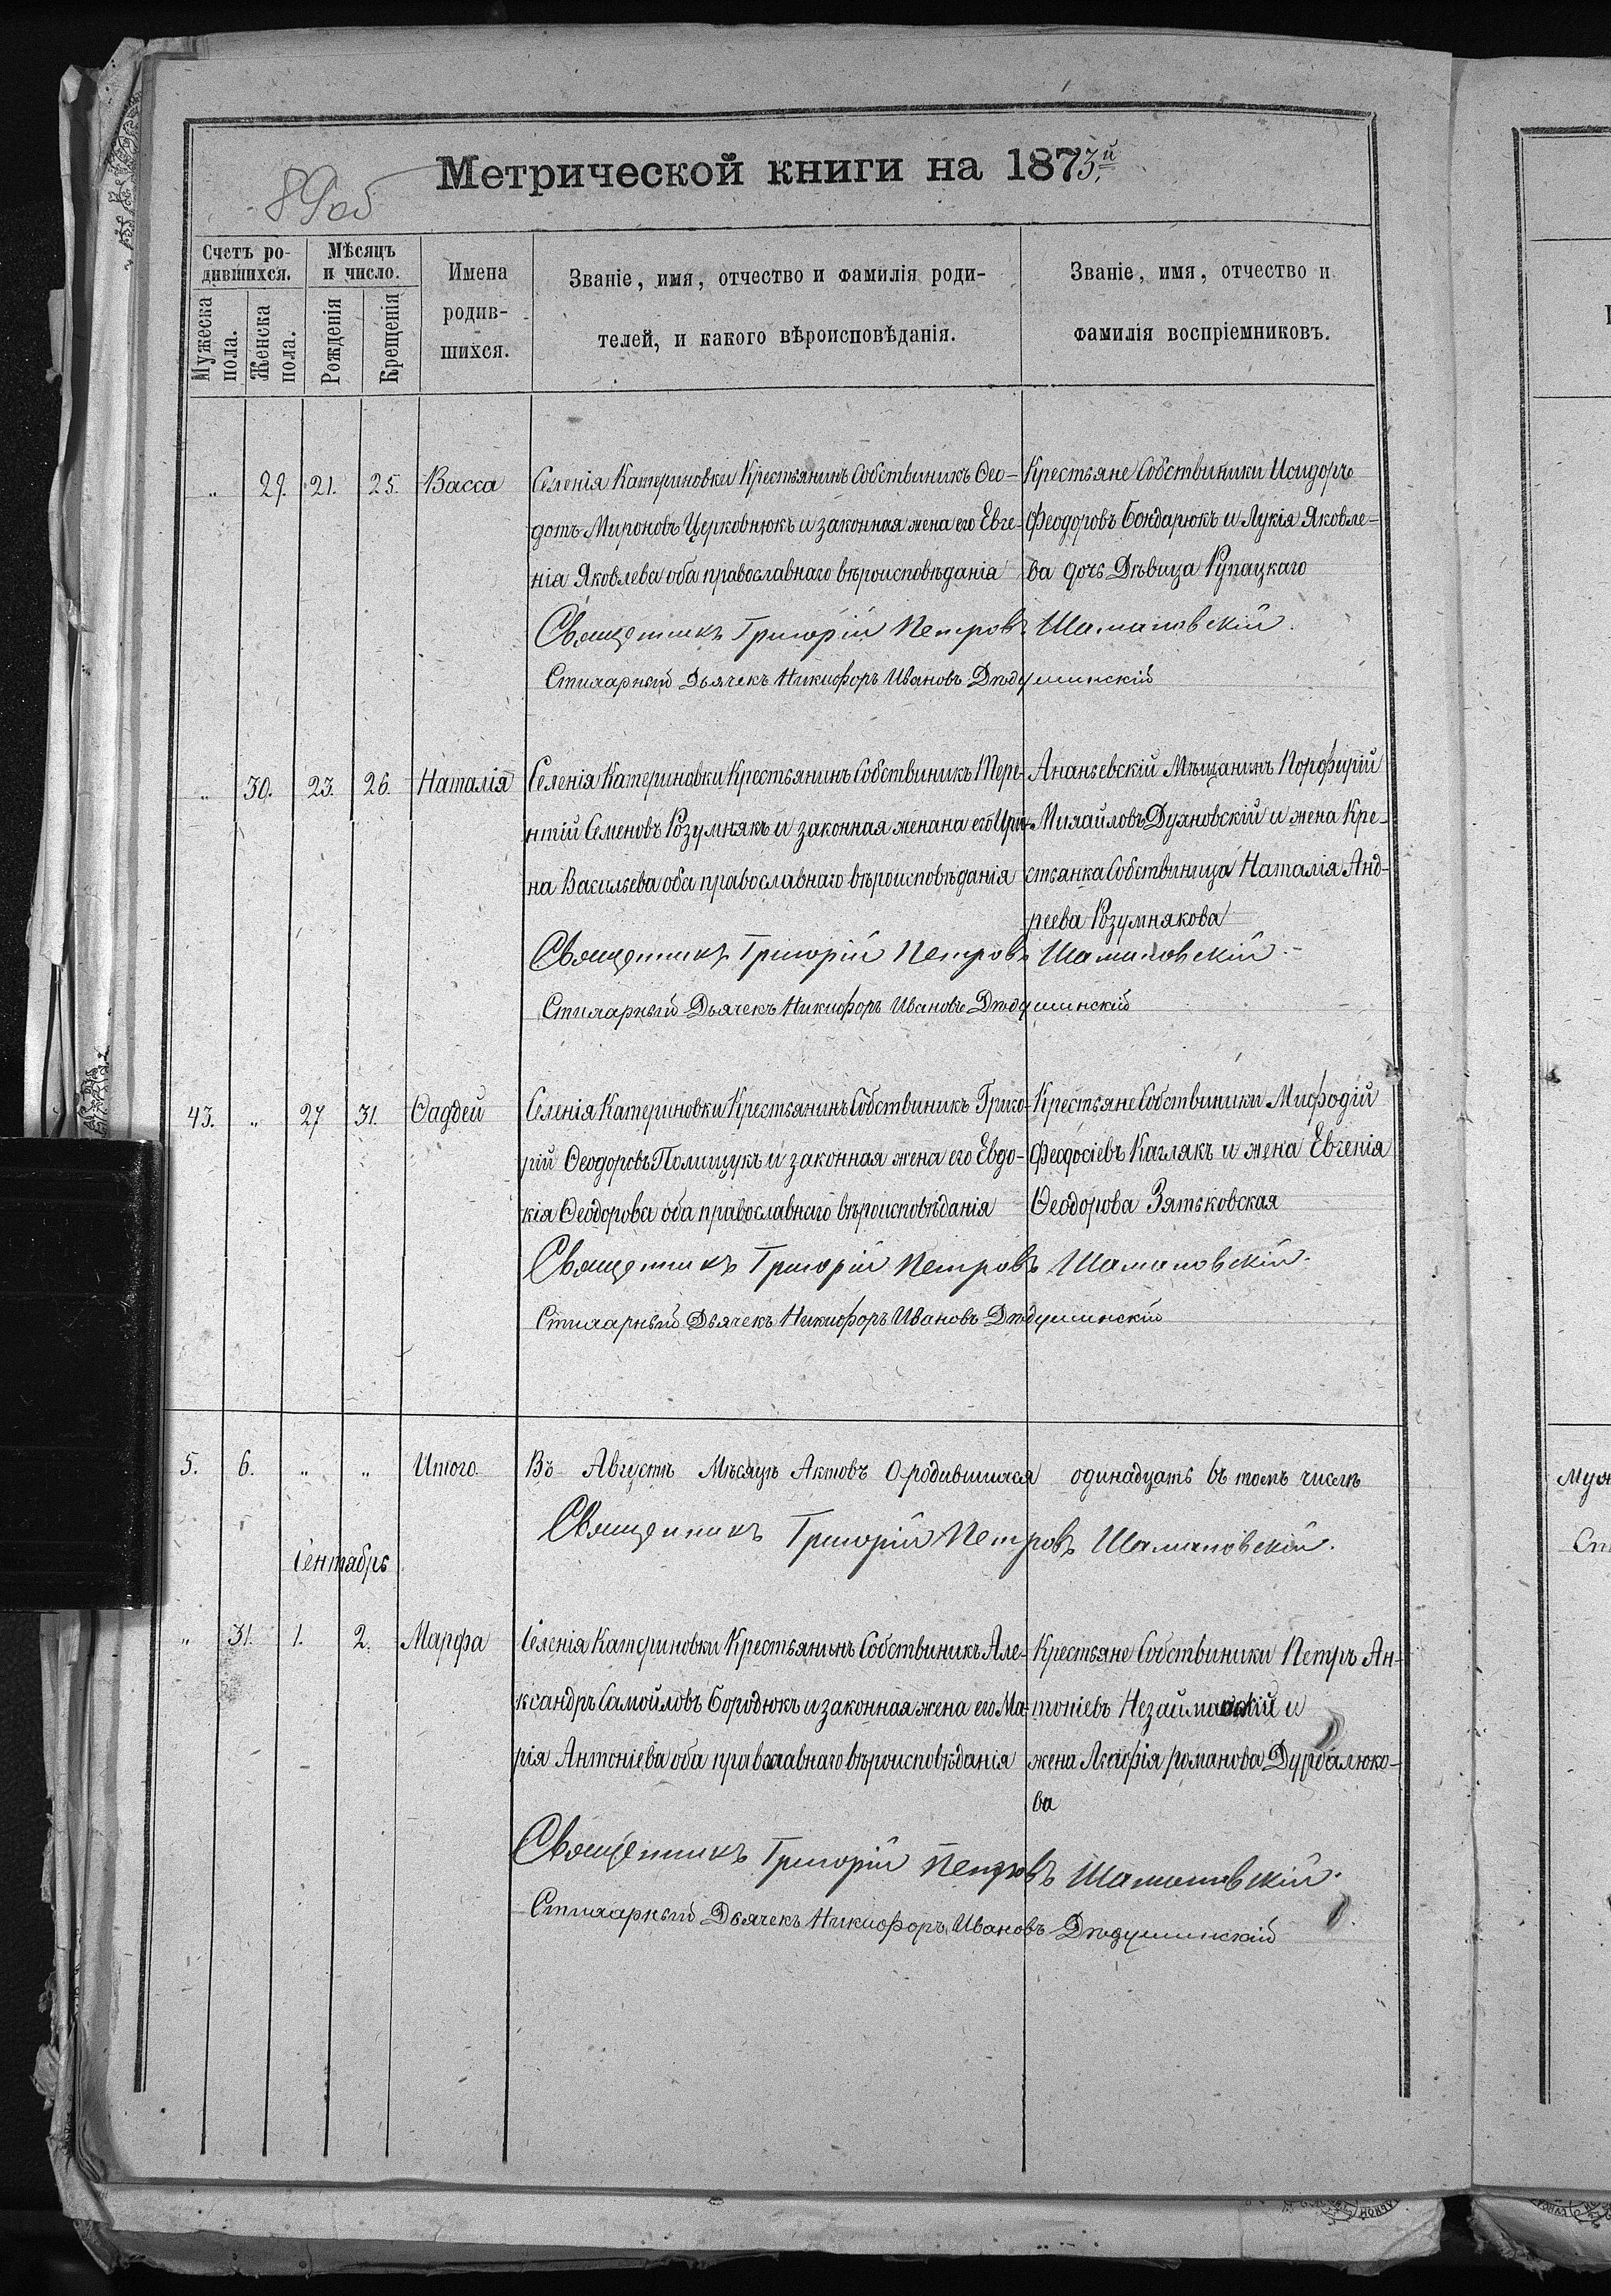 Метрической книги на 1873й.
89об
Счетъ родившихся.
Мѣсяцъ и число.
Имена родившихся.
Званіе, имя, отчество и фамилія родителей, и какого вѣроисповѣданія.
Званіе, имя, отчество и фамилія воспріемниковъ.
Мужеска пола.
Женска пола.
Рожденія
Крещенія
„ 29. 21. 25. Васса
Селенія Катериновки Крестьянинъ Собствиникъ Ѳео-
дотъ Мироновъ Церковнюкъ и законная жена его Евге-
нія Яковлева оба православнаго вѣроисповѣданія
Крестьяне Собствиники Исидоръ
Феодоровъ Бондарюкъ и Лукія Яковле-
ва дочь Дѣвица Купацкаго
Священникъ Григорій Петровъ Шамановскій.
Стихарный Дьячекъ Никифоръ Ивановъ Дѣдушинскій
„ 30. 23. 26. Наталія
Селенія Катериновки Крестьянинъ Собствиникъ Тере-
нтій Семеновъ Розумнякъ и законная женана его Ири-
на Васильева оба православнаго вѣроисповѣданія
Ананьевскій Мѣщанинъ Порофирій
Михайловъ Духновскій и жена Кре-
стьянка Собствиница Наталія Анд-
реева Розумнякова
Священникъ Григорій Петровъ Шамановскій.
Стихарный Дьячекъ Никифоръ Ивановъ Дѣдушинскій
43. „ 27 31. Ѳаддей
Селенія Катериновки Крестьянинъ Собствиникъ Григо-
рій Ѳеодоровъ Полищукъ и законная жена его Евдо-
кія Ѳеодорова оба православнаго вѣроисповѣданія
Крестьяне Собствиники Мифодій
Феодосіевъ Каглякъ и жена Евгенія
Ѳеодорова Зятьковская
Священникъ Григорій Петровъ Шамановскій.
Стихарный Дьячекъ Никифоръ Ивановъ Дѣдушинскій
5. 6. „ „ Итого.
Въ Августѣ Мѣсяцѣ Актовъ О родившихся одинадцать въ томъ числѣ
Священникъ Григорій Петровъ Шамановскій.
Сентябрь
„ 31. 1. 2. Марфа
Селенія Катериновки Крестьянинъ Собствиникъ Але-
ксандръ Самойловъ Бородюкъ и законная жена его Ма-
рія Антоніева оба православнаго вѣроисповѣданія
Крестьяне Собствиники Петръ Ан-
тоніевъ и
жена Агафія романова Дурбалюко-
ва
Священникъ Григорій Петровъ Шамановскій.
Стихарный Дьячекъ Никифоръ Ивановъ Дѣдушинскій